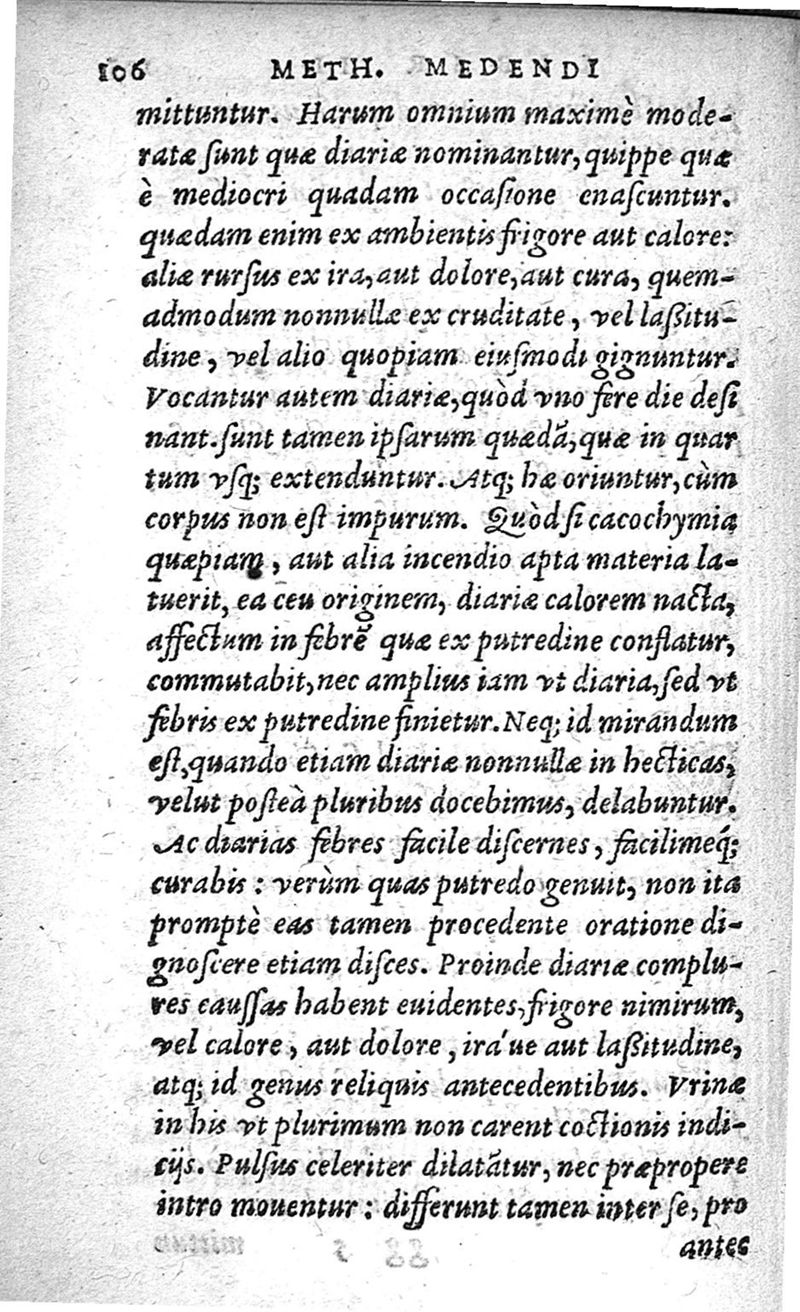 106 METH. MEDENDI
mittuntur. Harum omnium maximè mode-
ratæ ſunt quæ diariæ nominantur, quippe quæ
è mediocri quadam occaſione enaſcuntur.
quædam enim ex ambientis frigore aut calore:
aliæ rurſus ex ira, aut dolore, aut cura, quem-
admodum nonnullæ ex cruditate, vel laßitu-
dine, vel alio quopiam eiuſmodi gignuntur.
Vocantur autem diariæ, quòd vno fere die deſi
nant. ſunt tamen ipſarum quædã, quæ in quar
tum vſq; extenduntur. Atq; hæ oriuntur, cùm
corpus non eſt impurum. Quòd ſi cacochymia
quæpiam, aut alia incendio apta materia la-
tuerit, ea ceu originem, diariæ calorem nacta,
affectum in febrẽ quæ ex putredine conflatur,
commutabit, nec amplius iam vt diaria, ſed vt
febris ex putredine finietur. Neq; id mirandum
eſt, quando etiam diariæ nonnullæ in hecticas,
velut poſteà pluribus docebimus, delabuntur.
Ac diarias febres facile diſcernes, facilimeq́;
curabis: verùm quas putredo genuit, non ita
promptè eas tamen procedente oratione di-
gnoſcere etiam diſces. Proinde diariæ complu-
res cauſſas habent euidentes, frigore nimirum,
vel calore, aut dolore, ira´ue aut laßitudine,
atq; id genus reliquis antecedentibus. Vrinæ
in his vt plurimum non carent coctionis indi-
cijs. Pulſus celeriter dilatãtur, nec præpropere
intro mouentur: differunt tamen inter ſe, pro
antec